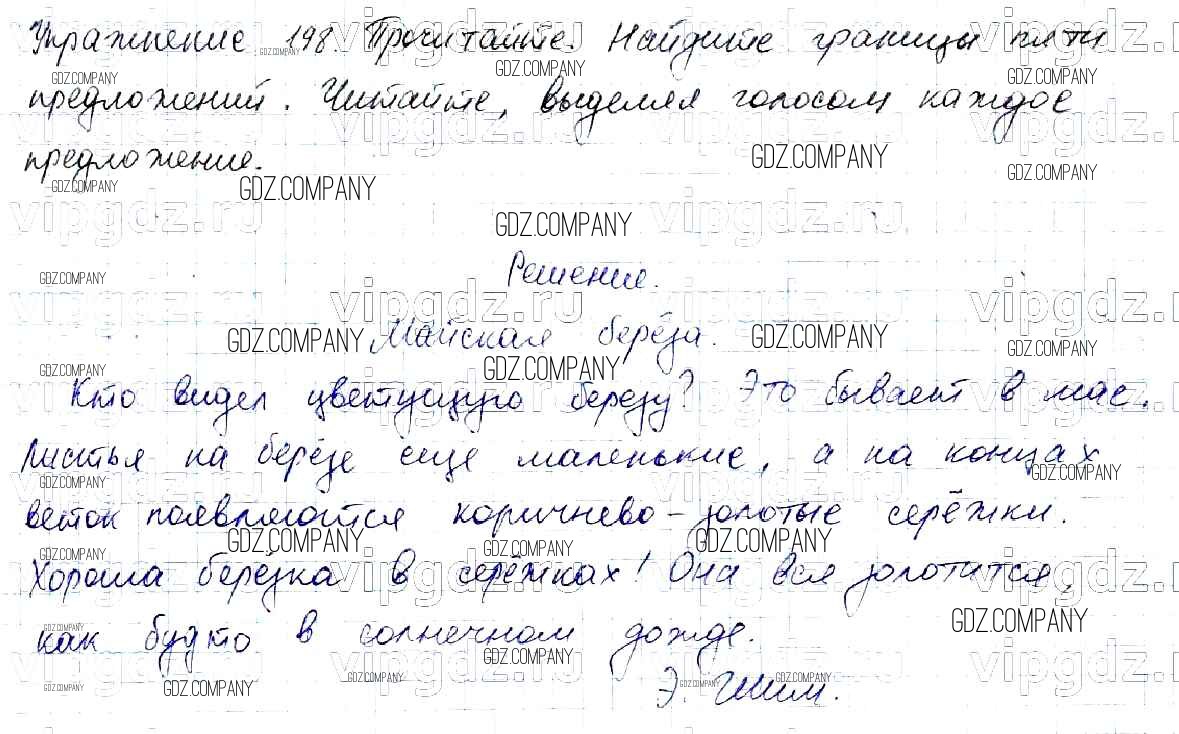 Упражнение 198. Прочитайте. Найдите границы пяти
предложений. Читайте, выделяя голосом каждое
предложение.
Решение.
Майская берёза.
Кто видел цветущую березу? Это бывает в мае.
Листья на берёзе еще маленькие, а на концах
веток появляются коричнево-золотые серёжки.
Хороша берёзка в серёжках! Она вся золотится,
как будто в солнечном дожде.
Э. Шим.
GDZ.COMPANY
vipgdz.ru